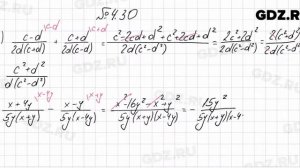 №430 GDZ.RU
) \frac{c-d}{2d(c+d)} + \frac{c+d}{2d(c-d)} = \frac{c²-2cd+d²+c²+2cd+d²}{2d(c²-d²)} = \frac{2c²+2d²}{2d(c²-d²)} = \frac{2(c²+d²
\frac{c²+d²}{d(c²-d²)}
\frac{x+4y}{5y(x+y)} - \frac{x-y}{5y(x-4y)} = \frac{x²-16y²-x²+y²}{5y(x+y)(x-4y)} = -\frac{15y²}{5y(x+y)(x-4
GDZ.RU